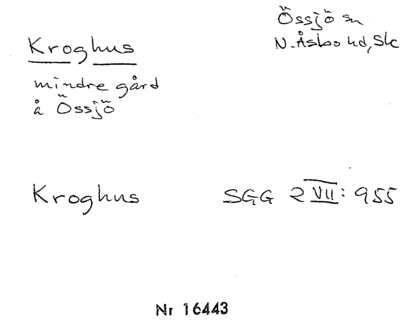 Össjö sn
N. Åsbo hd, Sk
Kroghus
mindre gård
å Össjö
Kroghus SGG 2 VII: 955
Nr 16443